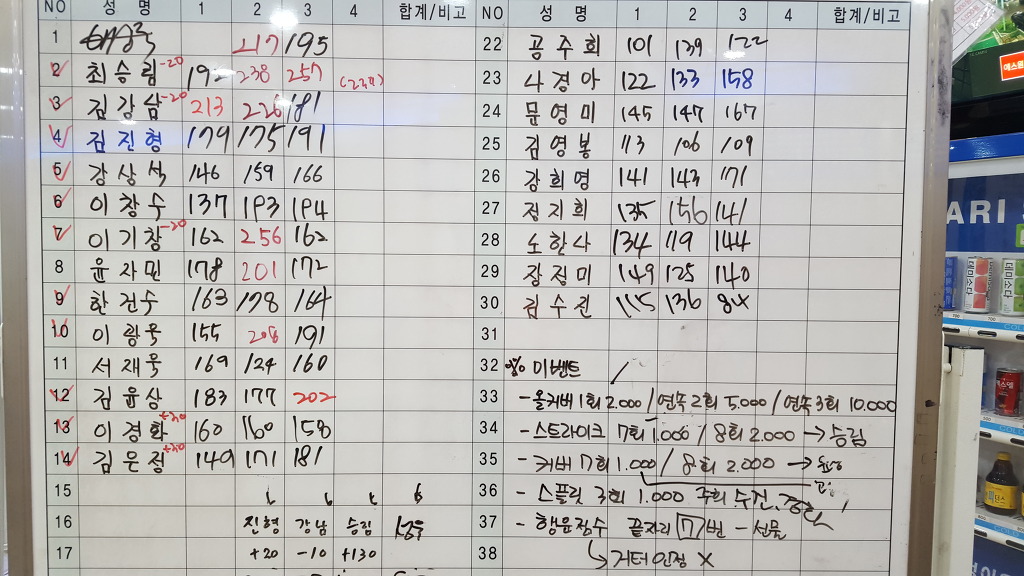 NO 성 명 1 2 3 4 합계/비고
1 217 195
2 최승림 -20 192 238 257
3 김강삼 -20 213 226 181
4 김진형 179 175 191
5 강상석 146 159 166
6 이창수 137 193 194
7 이기창 -20 162 256 162
8 윤자민 178 201 172
9 한건수 163 178 164
10 이광욱 155 208 191
11 서재욱 169 124 160
12 김윤상 183 177 202
13 이경화 +30 160 160 158
14 김은정 +30 149 171 181
15
16 진형 강남 승림
17 +20 -10 +130
NO 성 명 1 2 3 4 합계/비고
22 공주희 101 139 122
23 나경아 122 133 158
24 문영미 145 147 167
25 김영봉 113 106 109
26 강희영 141 143 171
27 정지희 135 156 141
28 노한나 134 119 144
29 장정미 149 125 140
30 김수진 115 136 84
31
32 이벤트
33 -올커버 1회 2.000 / 연속 2회 5.000 / 연속 3회 10.000
34 -스트라이크 7회 1.000 / 8회 2.000 → 승림
35 -커버 7회 1.000 / 8회 2.000 →
36 -스플릿 3회 1.000 주희, 수진,
37 -행운점수 끝자리 77번 -선물
38 거터인정 X
ARI S
데미소다
데미소다